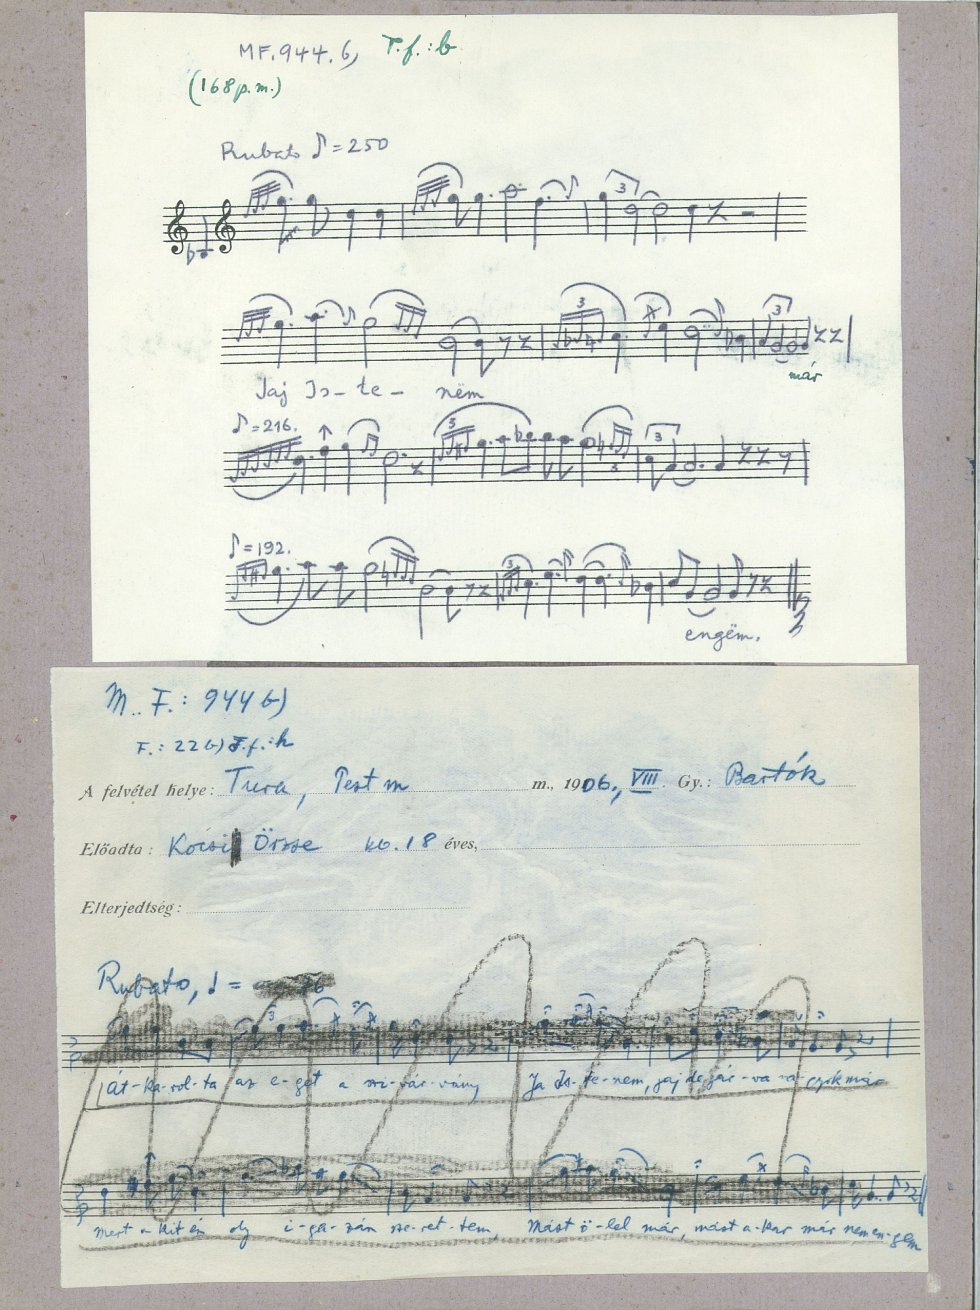 MF.944.b, T.f.: b
(168 p.m.)
Rubato ♪=250
3
3 3
Jaj Is-te- ném
már
♪=216.
3 3
3
♪=192.
3
engëm.
M. F.: 944 b)
F.: 22 b) T.f.: h
A felvétel helye: Tura, Pest m m., 1906., VIII. Gy.: Bartók
Előadta: Kocsi Örzse kb. 18 éves,
Elterjedtség:
Rubato, ♩ =
3
Át-ka-rol-ta az e-get a szi-vár-vány Ja Is-te-nem, jaj de jár-va va-gyok már
Mert a-kit én oly i-ga-zán sze-ret-tem, Mást ö-lel már, mást a-kar már nem en-gem